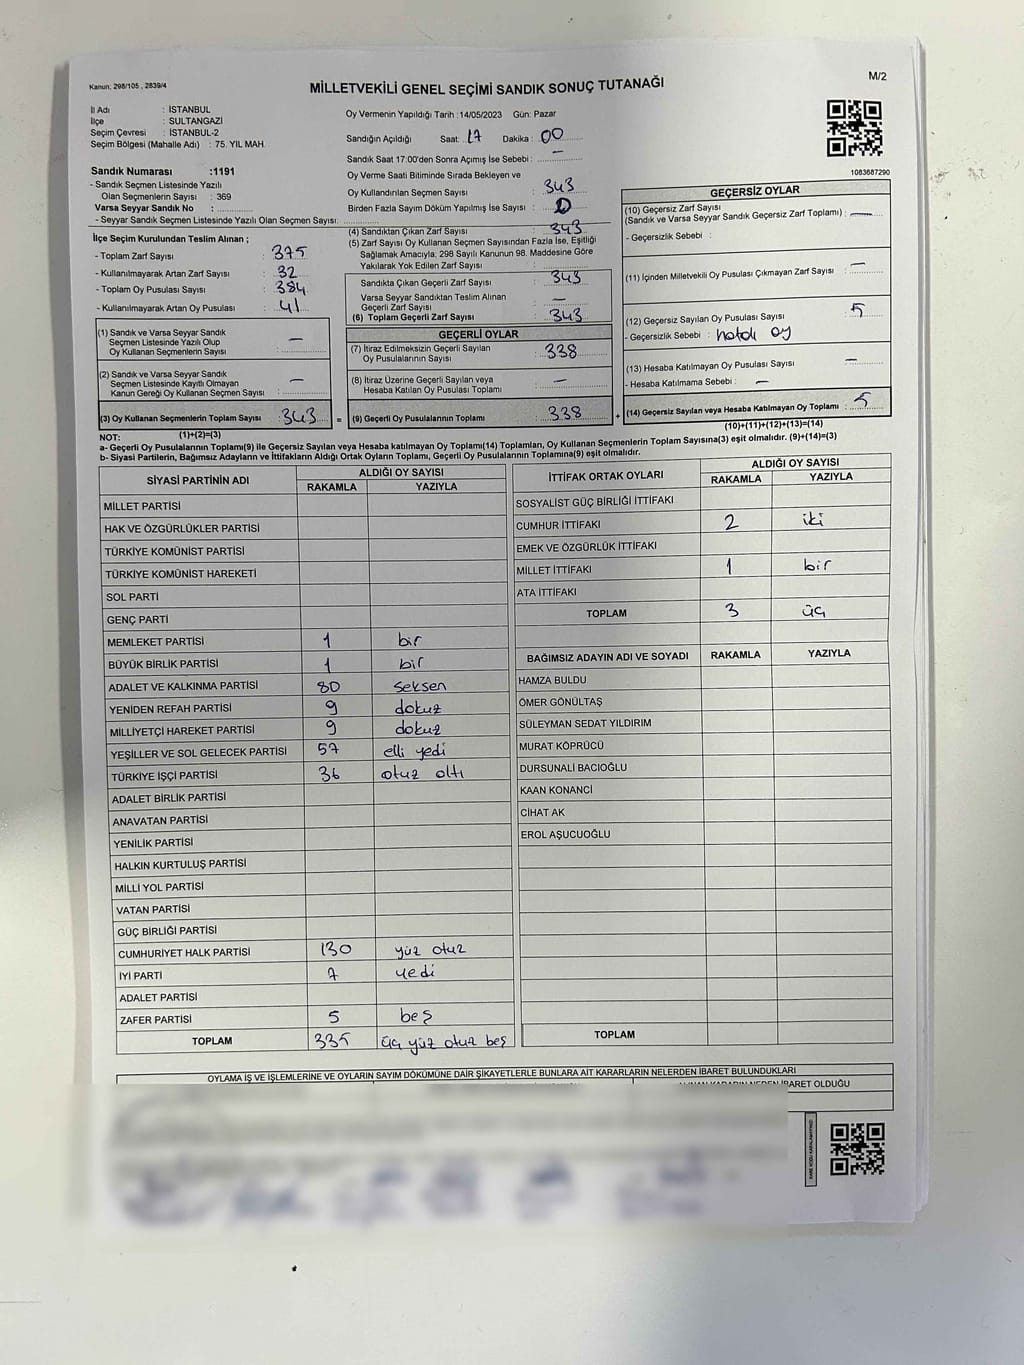 Kanun; 298/105 , 2839/4
MİLLETVEKİLİ GENEL SEÇİMİ SANDIK SONUÇ TUTANAĞI
M/2
İl Adı : İSTANBUL
İlçe : SULTANGAZİ
Seçim Çevresi : İSTANBUL-2
Seçim Bölgesi (Mahalle Adı) : 75. YIL MAH.
Sandık Numarası :1191
- Sandık Seçmen Listesinde Yazılı
Olan Seçmenlerin Sayısı : 369
Varsa Seyyar Sandık No :
- Seyyar Sandık Seçmen Listesinde Yazılı Olan Seçmen Sayısı:
Oy Vermenin Yapıldığı Tarih :14/05/2023 Gün: Pazar
Sandığın Açıldığı Saat: 17 Dakika : 00
Sandık Saat 17:00'den Sonra Açımış İse Sebebi : —
Oy Verme Saati Bitiminde Sırada Bekleyen ve
Oy Kullandırılan Seçmen Sayısı : 343
Birden Fazla Sayım Döküm Yapılmış İse Sayısı :
1083687290
İlçe Seçim Kurulundan Teslim Alınan ;
- Toplam Zarf Sayısı : 375
- Kullanılmayarak Artan Zarf Sayısı : 32
- Toplam Oy Pusulası Sayısı : 384
- Kullanılmayarak Artan Oy Pusulası : 41
(1) Sandık ve Varsa Seyyar Sandık
Seçmen Listesinde Yazılı Olup
Oy Kullanan Seçmenlerin Sayısı : —
(2) Sandık ve Varsa Seyyar Sandık
Seçmen Listesinde Kayıtlı Olmayan
Kanun Gereği Oy Kullanan Seçmen Sayısı : —
(3) Oy Kullanan Seçmenlerin Toplam Sayısı : 343
(1)+(2)=(3)
(4) Sandıktan Çıkan Zarf Sayısı : 343
(5) Zarf Sayısı Oy Kullanan Seçmen Sayısından Fazla İse, Eşitliği
Sağlamak Amacıyla; 298 Sayılı Kanunun 98. Maddesine Göre
Yakılarak Yok Edilen Zarf Sayısı :
Sandıkta Çıkan Geçerli Zarf Sayısı : 343
Varsa Seyyar Sandıktan Teslim Alınan
Geçerli Zarf Sayısı : —
(6) Toplam Geçerli Zarf Sayısı : 343
GEÇERLİ OYLAR
(7) İtiraz Edilmeksizin Geçerli Sayılan
Oy Pusulalarının Sayısı : 338
(8) İtiraz Üzerine Geçerli Sayılan veya
Hesaba Katılan Oy Pusulası Toplamı : —
= (9) Geçerli Oy Pusulalarının Toplamı : 338
GEÇERSİZ OYLAR
(10) Geçersiz Zarf Sayısı
(Sandık ve Varsa Seyyar Sandık Geçersiz Zarf Toplamı) : —
- Geçersizlik Sebebi :
(11) İçinden Milletvekili Oy Pusulası Çıkmayan Zarf Sayısı : —
(12) Geçersiz Sayılan Oy Pusulası Sayısı : 5
- Geçersizlik Sebebi : hatalı oy
(13) Hesaba Katılmayan Oy Pusulası Sayısı : —
- Hesaba Katılmama Sebebi : —
+ (14) Geçersiz Sayılan veya Hesaba Katılmayan Oy Toplamı : 5
(10)+(11)+(12)+(13)=(14)
NOT:
a- Geçerli Oy Pusulalarının Toplamı(9) ile Geçersiz Sayılan veya Hesaba katılmayan Oy Toplamı(14) Toplamları, Oy Kullanan Seçmenlerin Toplam Sayısına(3) eşit olmalıdır. (9)+(14)=(3)
b- Siyasi Partilerin, Bağımsız Adayların ve İttifakların Aldığı Ortak Oyların Toplamı, Geçerli Oy Pusulalarının Toplamına(9) eşit olmalıdır.
SİYASİ PARTİNİN ADI ALDIĞI OY SAYISI
RAKAMLA YAZIYLA
MİLLET PARTİSİ
HAK VE ÖZGÜRLÜKLER PARTİSİ
TÜRKİYE KOMÜNİST PARTİSİ
TÜRKİYE KOMÜNİST HAREKETİ
SOL PARTİ
GENÇ PARTİ
MEMLEKET PARTİSİ 1 bir
BÜYÜK BİRLİK PARTİSİ 1 bir
ADALET VE KALKINMA PARTİSİ 80 seksen
YENİDEN REFAH PARTİSİ 9 dokuz
MİLLİYETÇİ HAREKET PARTİSİ 9 dokuz
YEŞİLLER VE SOL GELECEK PARTİSİ 57 elli yedi
TÜRKİYE İŞÇİ PARTİSİ 36 otuz altı
ADALET BİRLİK PARTİSİ
ANAVATAN PARTİSİ
YENİLİK PARTİSİ
HALKIN KURTULUŞ PARTİSİ
MİLLİ YOL PARTİSİ
VATAN PARTİSİ
GÜÇ BİRLİĞİ PARTİSİ
CUMHURİYET HALK PARTİSİ 130 yüz otuz
İYİ PARTİ 7 yedi
ADALET PARTİSİ
ZAFER PARTİSİ 5 beş
TOPLAM 335 üç yüz otuz beş
İTTİFAK ORTAK OYLARI ALDIĞI OY SAYISI
RAKAMLA YAZIYLA
SOSYALİST GÜÇ BİRLİĞİ İTTİFAKI
CUMHUR İTTİFAKI 2 iki
EMEK VE ÖZGÜRLÜK İTTİFAKI
MİLLET İTTİFAKI 1 bir
ATA İTTİFAKI
TOPLAM 3 üç
BAĞIMSIZ ADAYIN ADI VE SOYADI RAKAMLA YAZIYLA
HAMZA BULDU
ÖMER GÖNÜLTAŞ
SÜLEYMAN SEDAT YILDIRIM
MURAT KÖPRÜCÜ
DURSUNALİ BACIOĞLU
KAAN KONANCİ
CİHAT AK
EROL AŞUCUOĞLU
TOPLAM
OYLAMA İŞ VE İŞLEMLERİNE VE OYLARIN SAYIM DÖKÜMÜNE DAİR ŞİKAYETLERLE BUNLARA AİT KARARLARIN NELERDEN İBARET BULUNDUKLARI
KARARIN NEDEN İBARET OLDUĞU